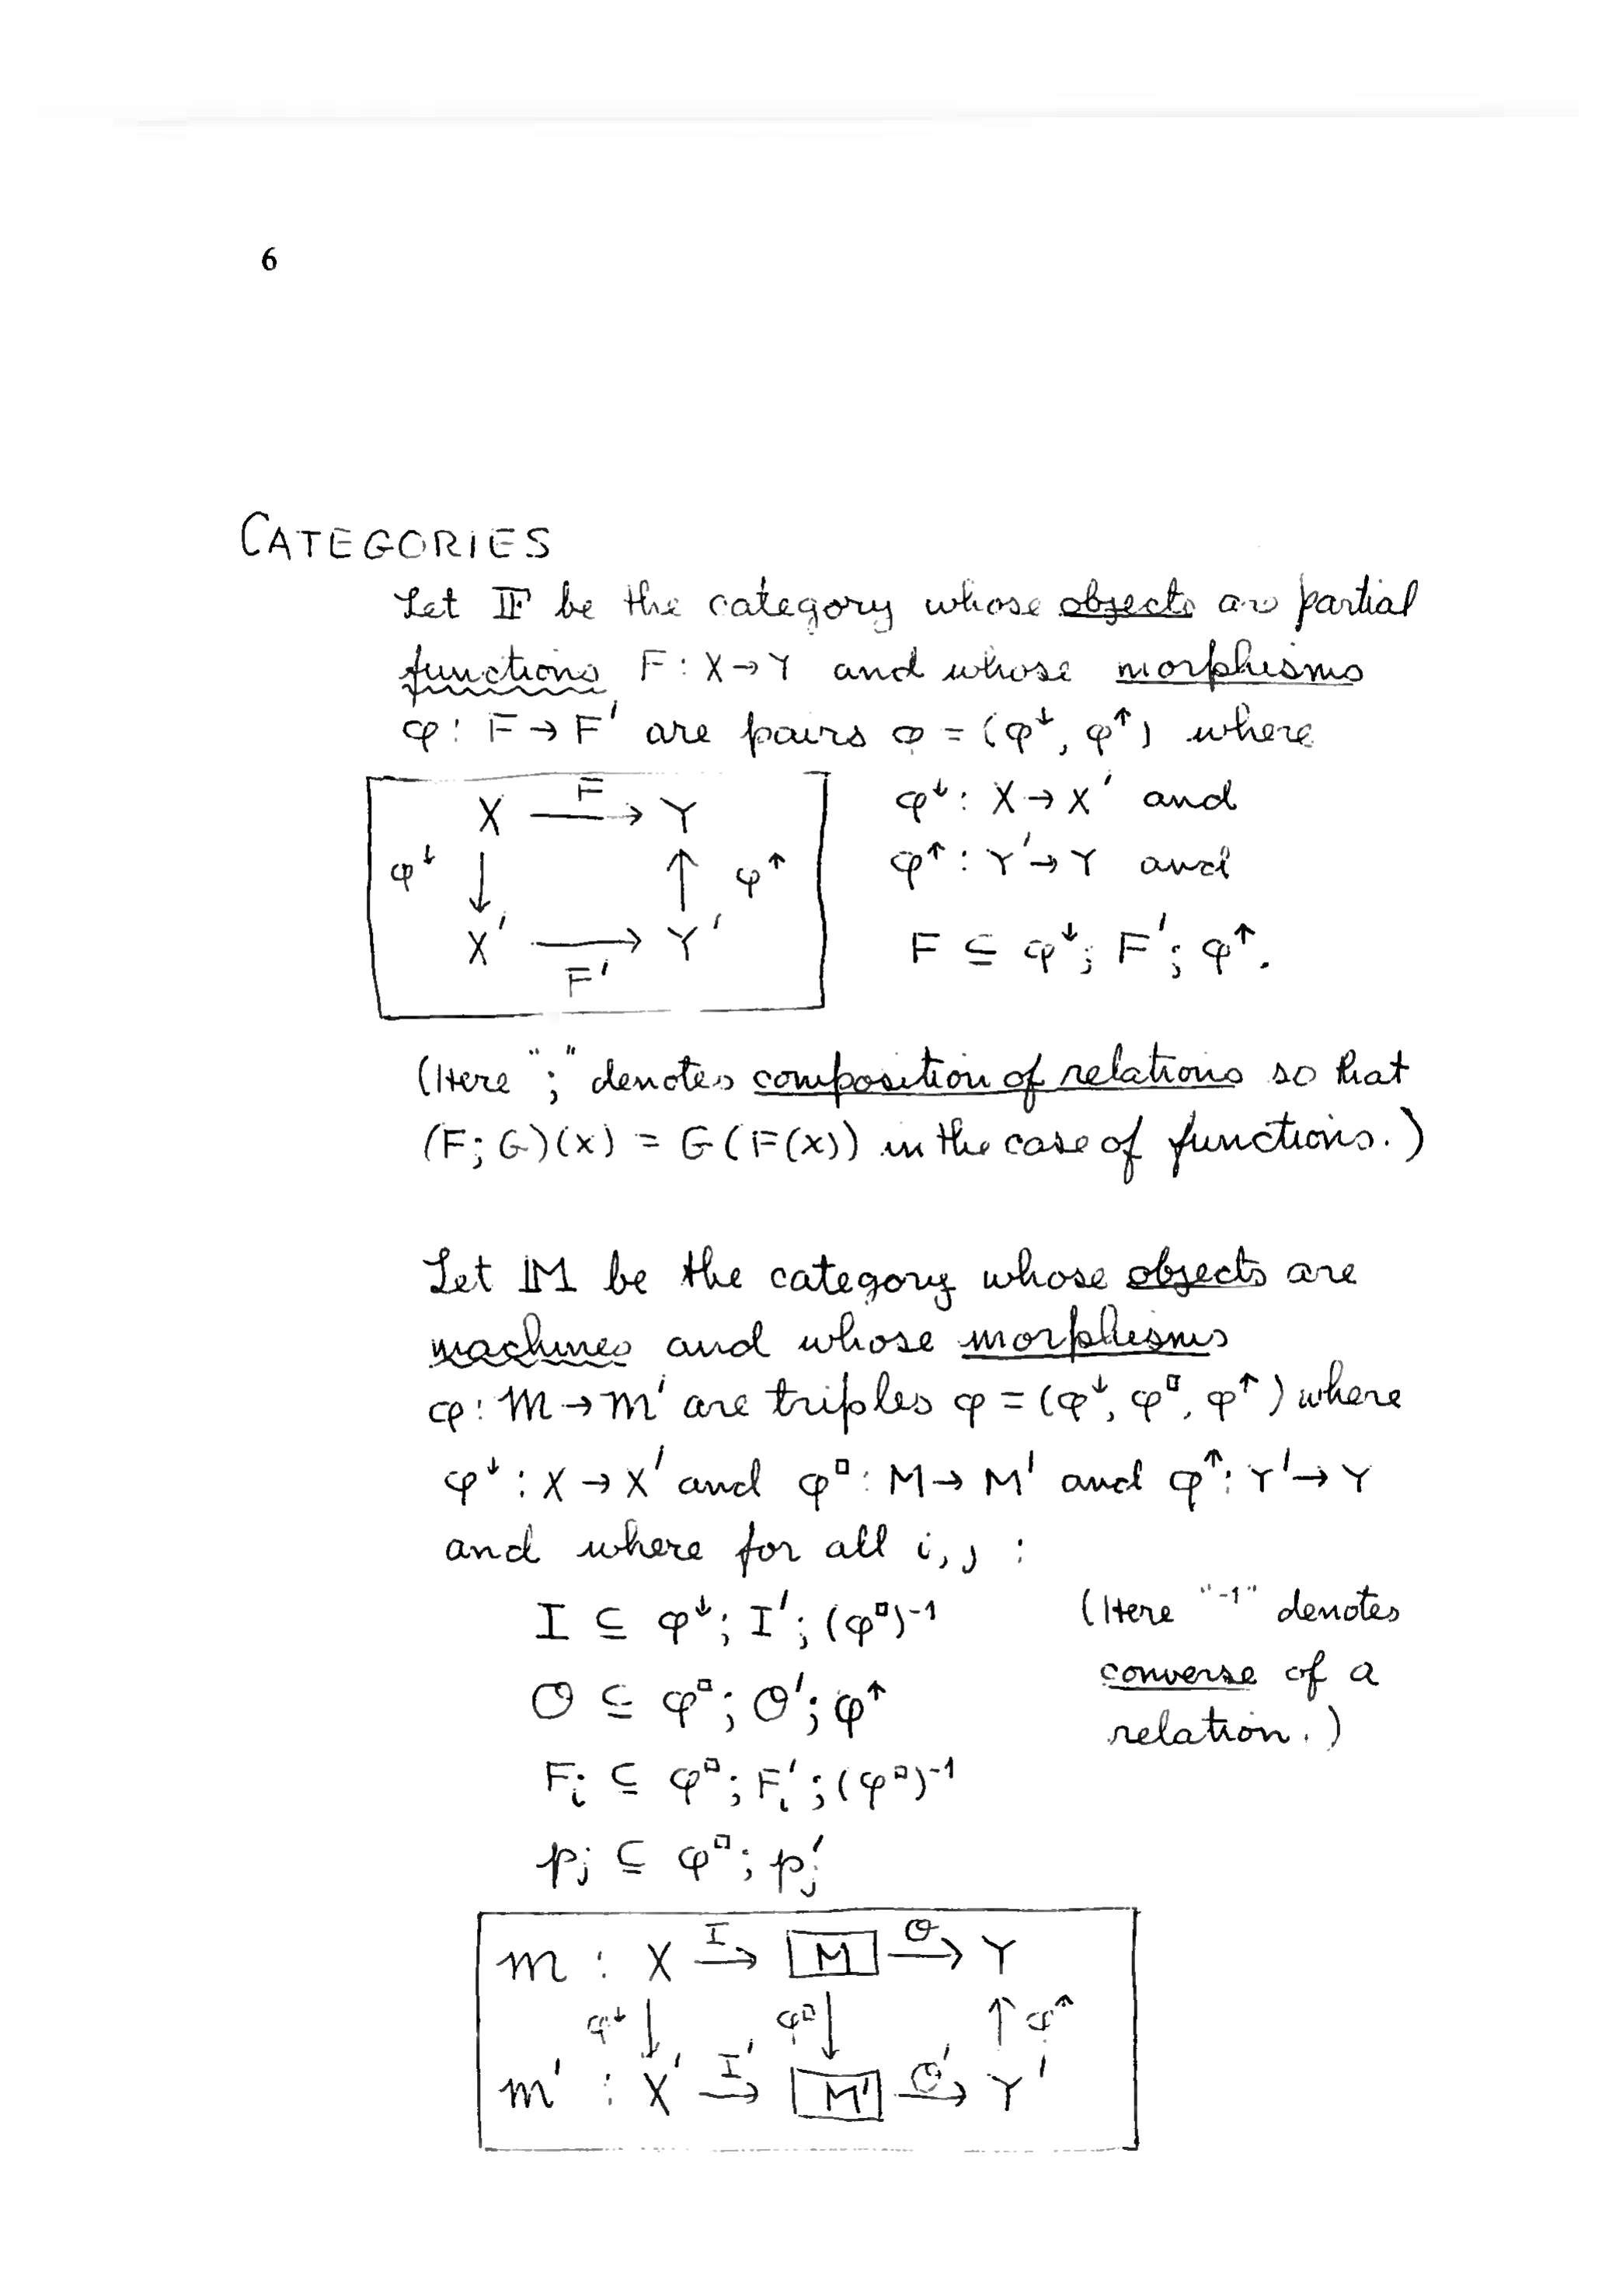 6
CATEGORIES
Let 𝔽 be the category whose objects are partial
functions F : X → Y and whose morphisms
φ : F → F′ are pairs φ = (φ↓, φ↑) where
X F Y
φ↓ φ↑
X′ F′ Y′
φ↓ : X → X′ and
φ↑ : Y′ → Y and
F ⊆ φ↓; F′; φ↑.
(Here ";" denotes composition of relations so that
(F; G)(x) = G(F(x)) in the case of functions.)
Let 𝕄 be the category whose objects are
machines and whose morphisms
φ : m → m′ are triples φ = (φ↓, φ□, φ↑) where
φ↓ : X → X′ and φ□ : M → M′ and φ↑ : Y′ → Y
and where for all i, j :
I ⊆ φ↓; I′; (φ□)⁻¹
O ⊆ φ□; O′; φ↑
Fᵢ ⊆ φ□; Fᵢ′; (φ□)⁻¹
pⱼ ⊆ φ□; pⱼ′
(Here "-1" denotes
converse of a
relation.)
m : X I M O Y
φ↓ φ□ φ↑
m′ : X′ I′ M′ O′ Y′